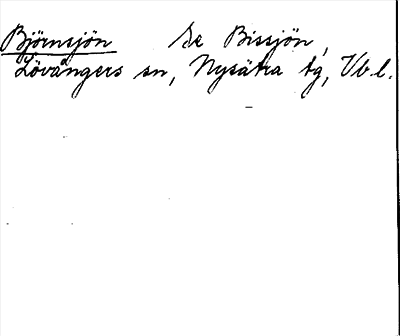 Björnsjön Se Bissjön,
Lövångers sn, Nysätra tg, Vb.l.